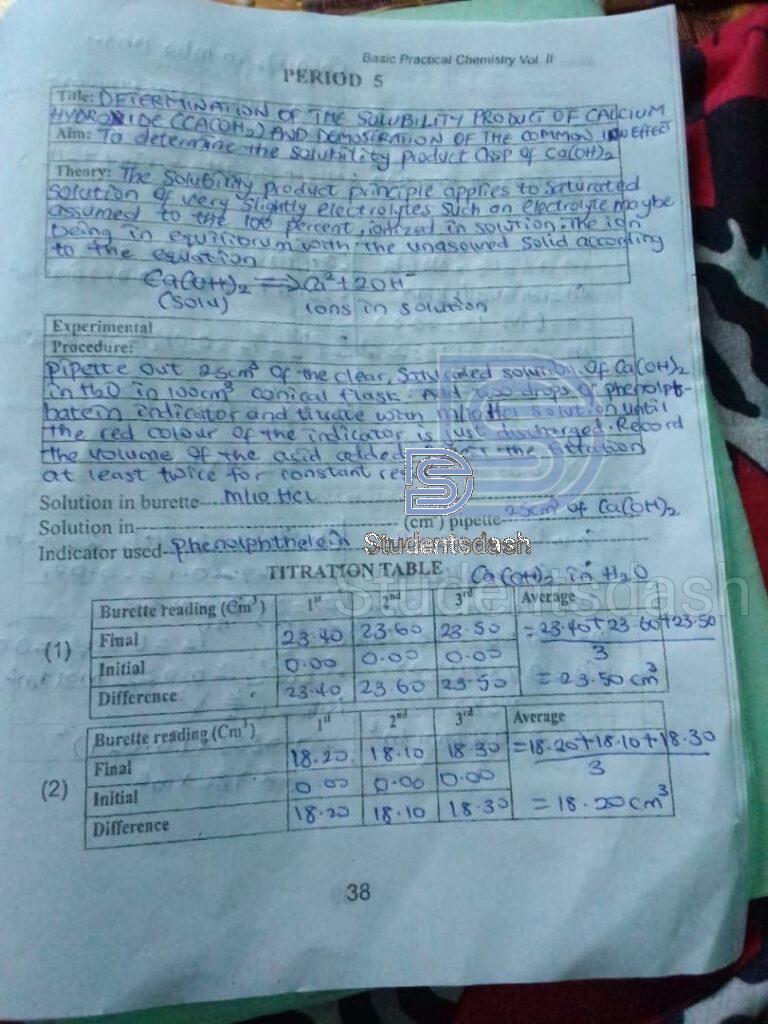 Basic Practical Chemistry Vol. II
PERIOD 5
Title: DETERMINATION OF THE SOLUBILITY PRODUCT OF CALCIUM
HYDROXIDE (CA(OH)2) AND DEMOSTRATION OF THE COMMON ION EFFECT
Aim: To determine the solubility product (Ksp) of Ca(OH)2
Theory: The Solubility product principle applies to Saturated
solution of very slightly electrolytes such an electrolyte maybe
assumed to the 100 percent, ionized in solution. The ion
being in equilibrum with the
solid according
to the equation
Ca(OH)2 ⇌ Ca²+ + 2OH⁻
(Solu) ions in solution
Experimental
Procedure:
Pipette out 25cm³ of the clear, Saturated solution, of Ca(OH)2
in H2O in 100cm³ conical flask. Add two drops of phenolpt-
halein indicator and titrate with M/10 HCl solution until
the red colour of the indicator is just discharged. Record
the volume of the acid added the titration
at least twice for constant
Solution in burette M/10 HCL
Solution in (cm³) pipette 25cm³ of Ca(OH)2
Indicator used Phenolphthelein
Studentsdash
TITRATION TABLE Ca(OH)2 in H2O
Studentsdash
(1)
Burette reading (Cm³) 1st 2nd 3rd Average
Final 23.40 23.60 23.50 = 23.40+23.60+23.50
3
Initial 0.00 0.00 0.00
Difference 23.40 23.60 23.50 = 23.50 cm³
(2)
Burette reading (Cm³) 1st 2nd 3rd Average
Final 18.20 18.10 18.30 = 18.20+18.10+18.30
3
Initial 0.00 0.00 0.00
Difference 18.20 18.10 18.30 = 18.20cm³
38